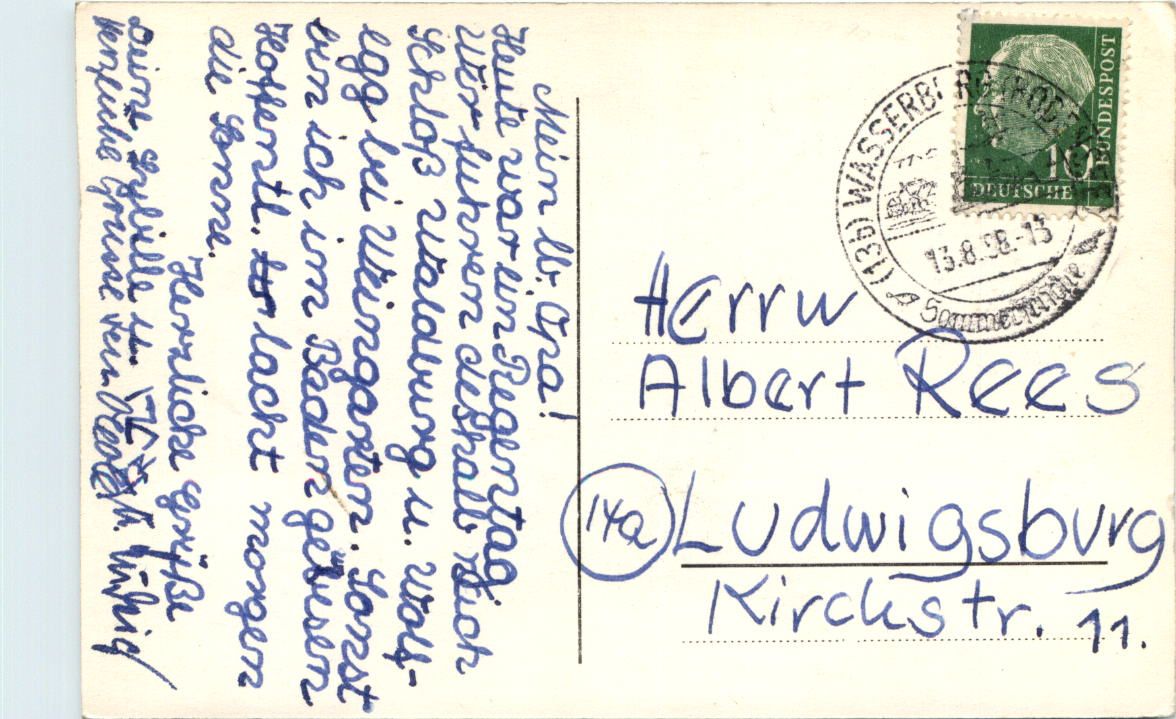 Mein lb. Opa!
Heute war ein Regentag
Wir fuhren deshalb nach
Schloß Waldburg u. Wolf-
egg bei Weingarten. Sonst
bin ich im Baden gewesen
Hoffentl. lacht morgen
die Sonne.
Herzliche Grüße
Deine Sybille
herzliche Grüsse von
Herrn
Albert Rees
14a Ludwigsburg
Kirchstr. 11.
(13b) WASSERBURG (BODENSEE)
13.8.58.-13
Sommerfrische
DEUTSCHE
BUNDESPOST
10